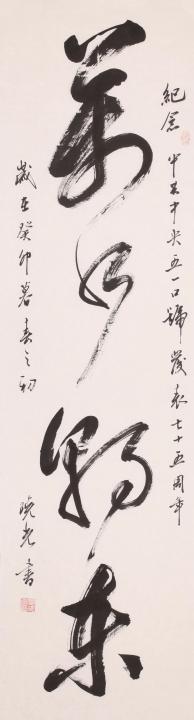 紀念中共中央五一口號發表七十五周年
萬水朝東
歲在癸卯暮春之初
曉光書